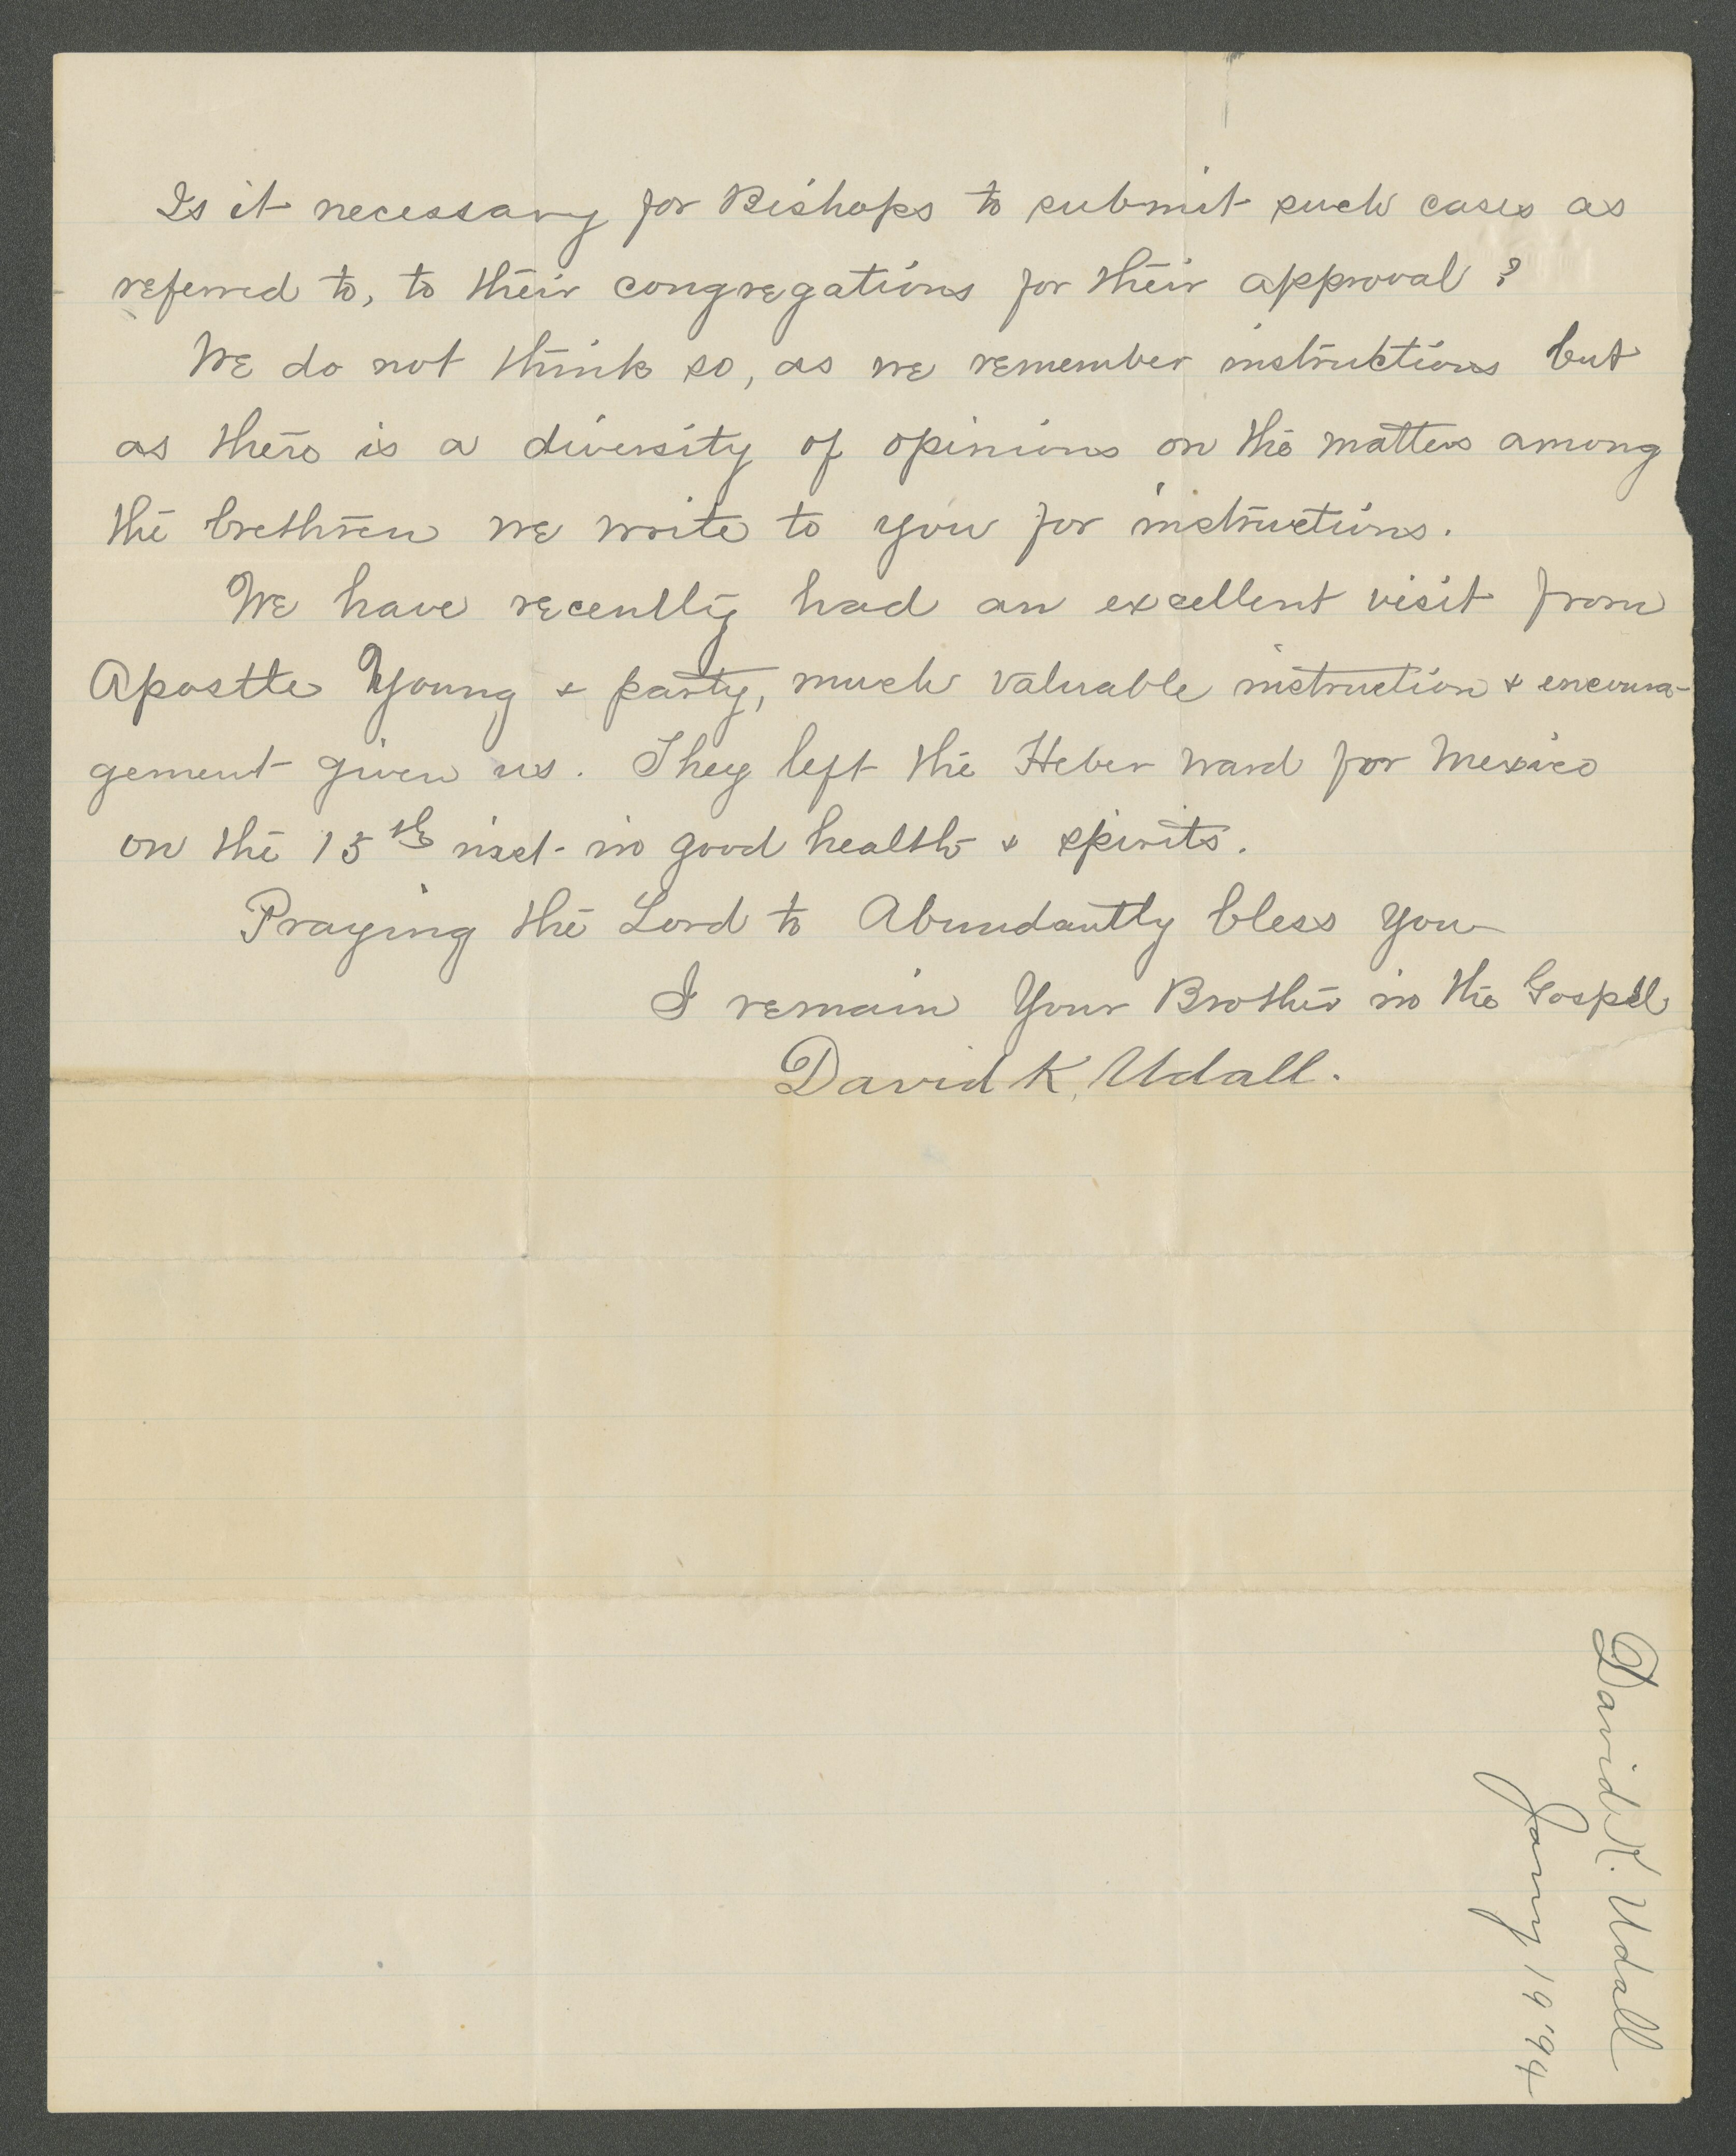 Is it necessary for Bishops to submit such cases as
referred to, to their congregations for their approval?
We do not think so, as we remember instructions but
as there is a diversity of opinions on the matter among
the brethren we write to you for instructions.
We have recently had an excellent visit from
Apostle Young & party, much valuable instruction & encoura-
gement given us. They left the Heber ward for Mexico
on the 15th inst. in good health & spirits.
Praying the Lord to Abundantly bless you
I remain Your Brother in the Gospel
David K. Udall.
David K. Udall
Jany 19 '94